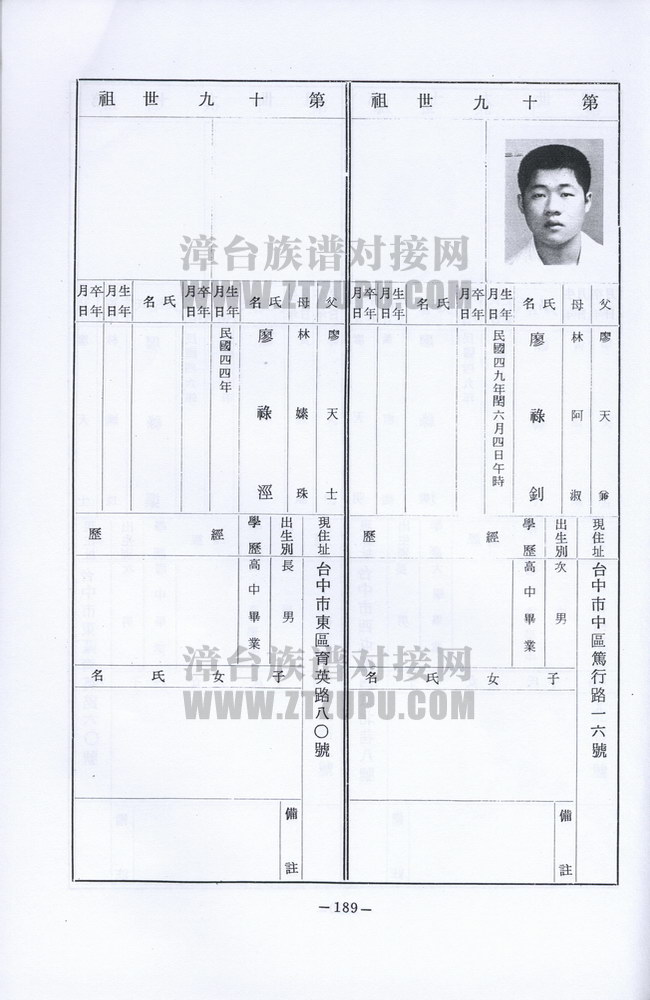 第十九世祖
父 廖天爺
母 林阿淑
氏名 廖祿釗
生年月日 民國四九年閏六月四日午時
卒年月日
氏名
生年月日
卒年月日
現住址 台中市中區篤行路一六號
出生別 次男
學歷 高中畢業
經歷
子女氏名
備註
第十九世祖
父 廖天士
母 林嫊珠
氏名 廖祿涇
生年月日 民國四四年
卒年月日
氏名
生年月日
卒年月日
現住址 台中市東區育英路八〇號
出生別 長男
學歷 高中畢業
經歷
子女氏名
備註
—189—
漳台族谱对接网
WWW.ZTZUPU.COM
漳台族谱对接网
WWW.ZTZUPU.COM